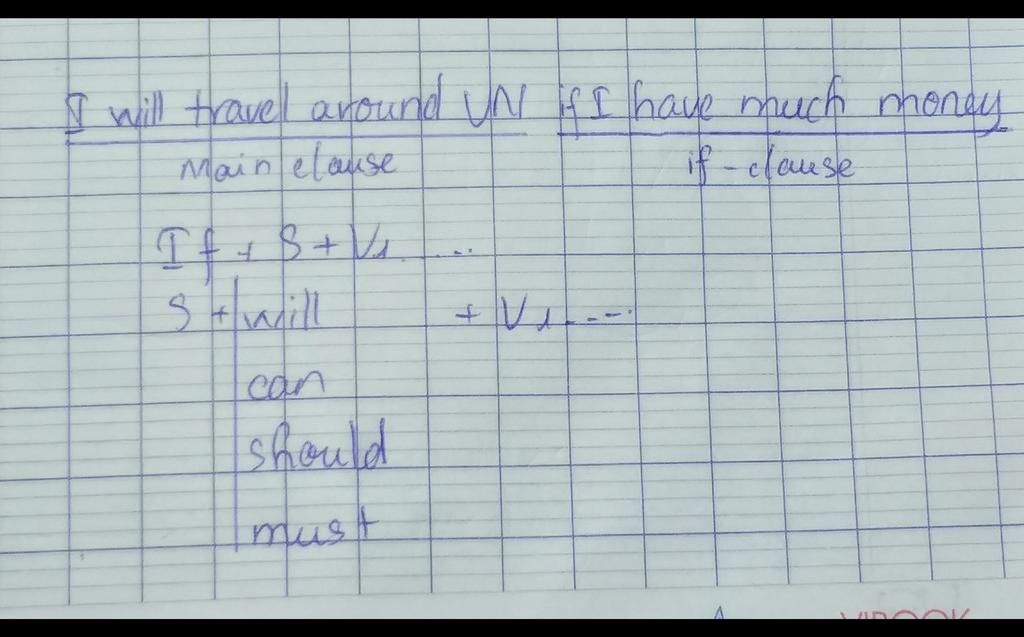 I will travel around VN if I have much money
Main clause if-clause
If + S + V1.....
S + will + V1.....
can
should
must